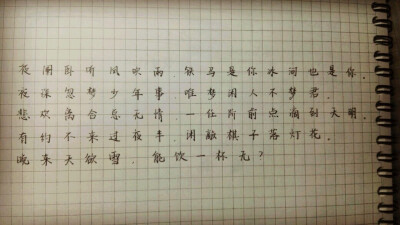 夜阑卧听风吹雨，铁马是你冰河也是你。
夜深忽梦少年事，唯梦闲人不梦君。
悲欢离合总无情，一任阶前点滴到天明。
有约不来过夜半，闲敲棋子落灯花。
晚来天欲雪，能饮一杯无？